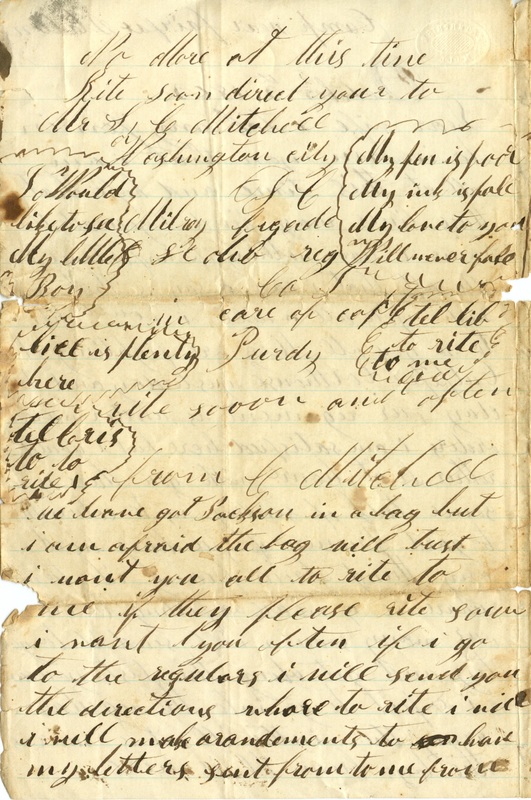 No More at this time
Rite soon direct your to
Mr L C Mitchell
Washington city
Milroy brigade
82 ohio reg
Co I
in care of capt
Purdy
rite soon and often
from C Mitchell
I Would
like to see
My little
Boy
lice is plenty
here
tel loris
to to
rite
My pen is poor
My ink is pale
My love to you
Will never fale
tel lib
to rite
to me
we have got Jackson in a bag but
i am afraid the bag will bust
i want you all to rite to
me if they please rite soon
i want you often if i go
to the regulars i will send you
the directions whare to rite i will
i will make arandements to have
my letters sent from to me from